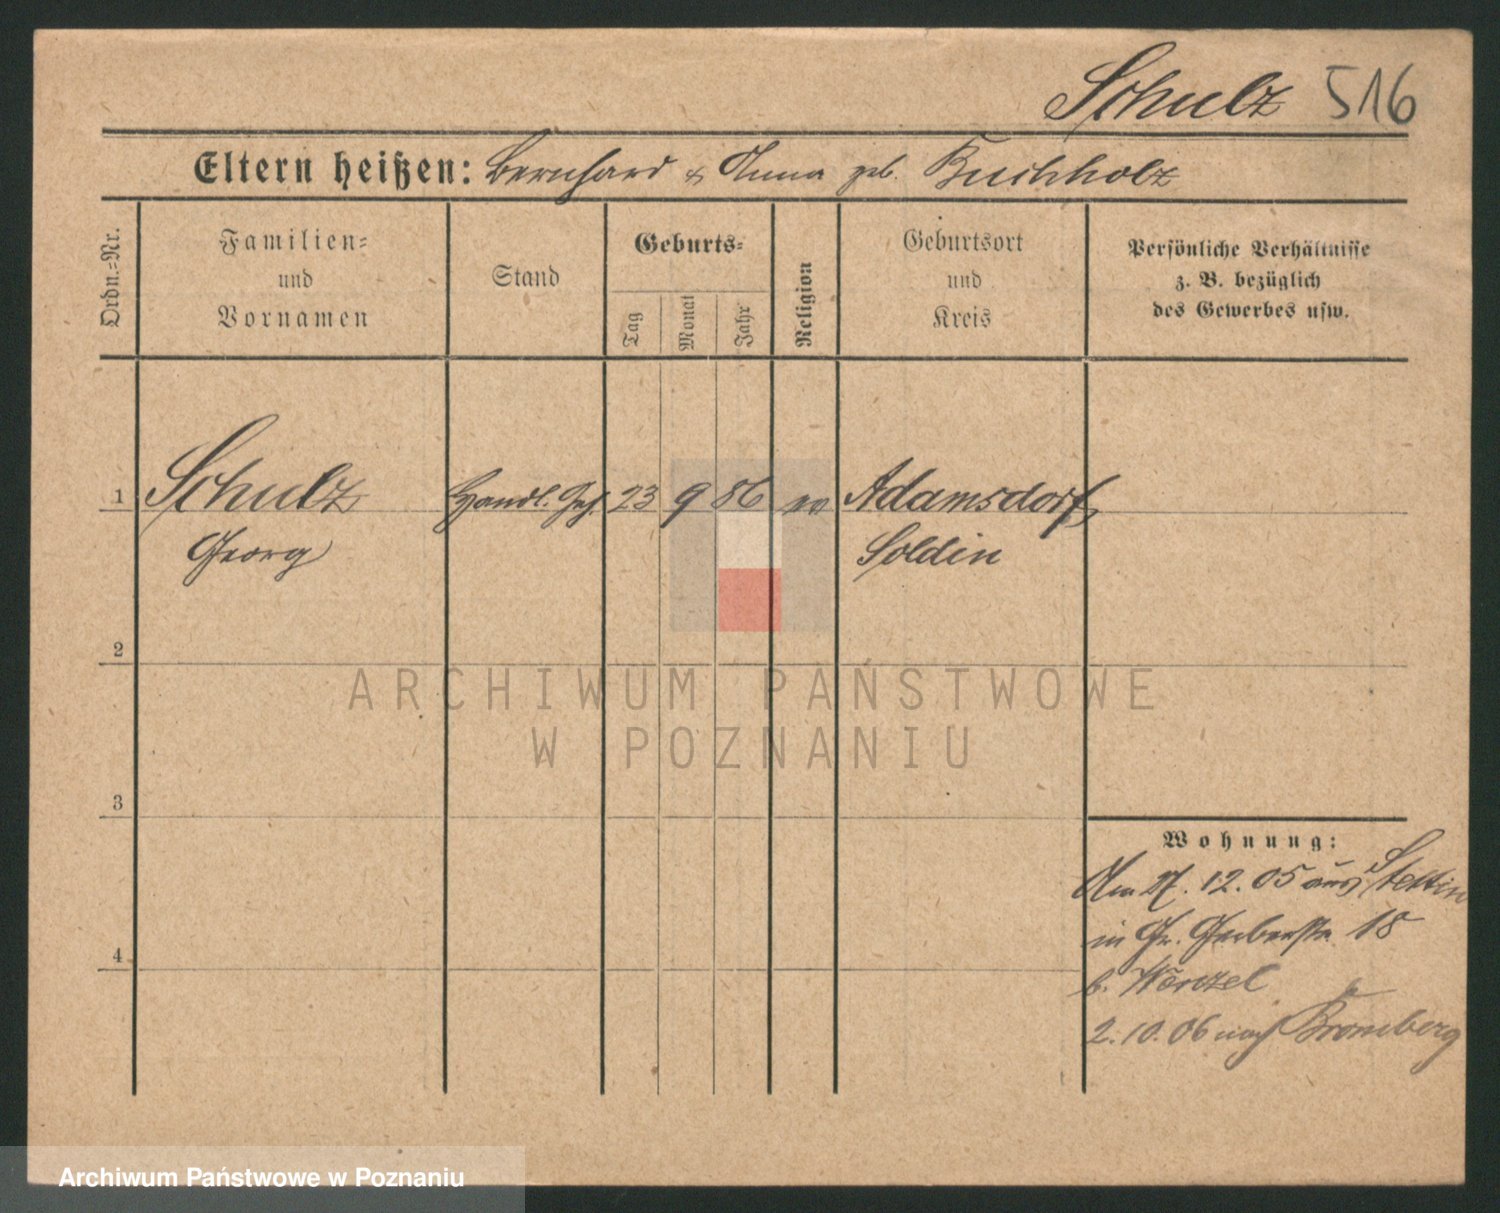 Schulz 516
Eltern heißen: Bernhard & Anna geb. Buchholz
Ordn.-Nr.
Familien-
und
Vornamen
Stand
Geburts-
Tag
Monat
Jahr
Religion
Geburtsort
und
Kreis
Persönliche Verhältnisse
z. B. bezüglich
des Gewerbes usw.
1 Schulz Handl. Geh. 23 9 86 ev Adamsdorf,
Georg Soldin
2
3
4
Wohnung:
Am 27. 12. 05 aus Stettin
in Gr. Gerberstr. 18
b. Wenzel
2. 10. 06 nach Bromberg
ARCHIWUM PAŃSTWOWE
W POZNANIU
Archiwum Państwowe w Poznaniu